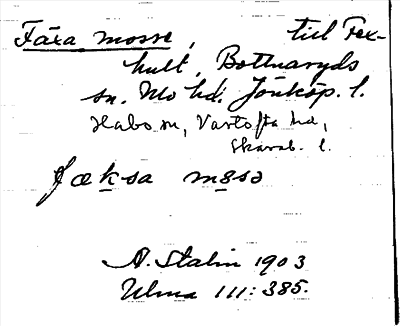 Fäxa mosse, till Fex-
hult, Bottnaryds
sn. Mo hd. Jönköp. l.
Habo sn, Vartofta hd,
Skarab. l.
fæksa
A. Stalin 1903
Ulma 111: 385.